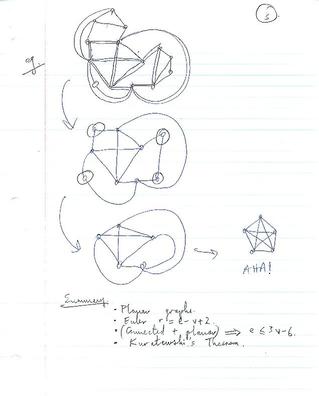 5
g.
AHA!
Summary
· Planar graphs.
· Euler r = e - v + 2.
· (Connected + planar) ⟹ e ≤ 3v - 6.
· Kuratowski's Theorem.